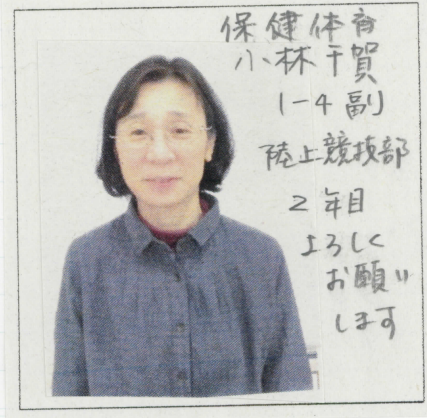 保健体育
小林千賀
1-4副
陸上競技部
2年目
よろしく
お願い
します